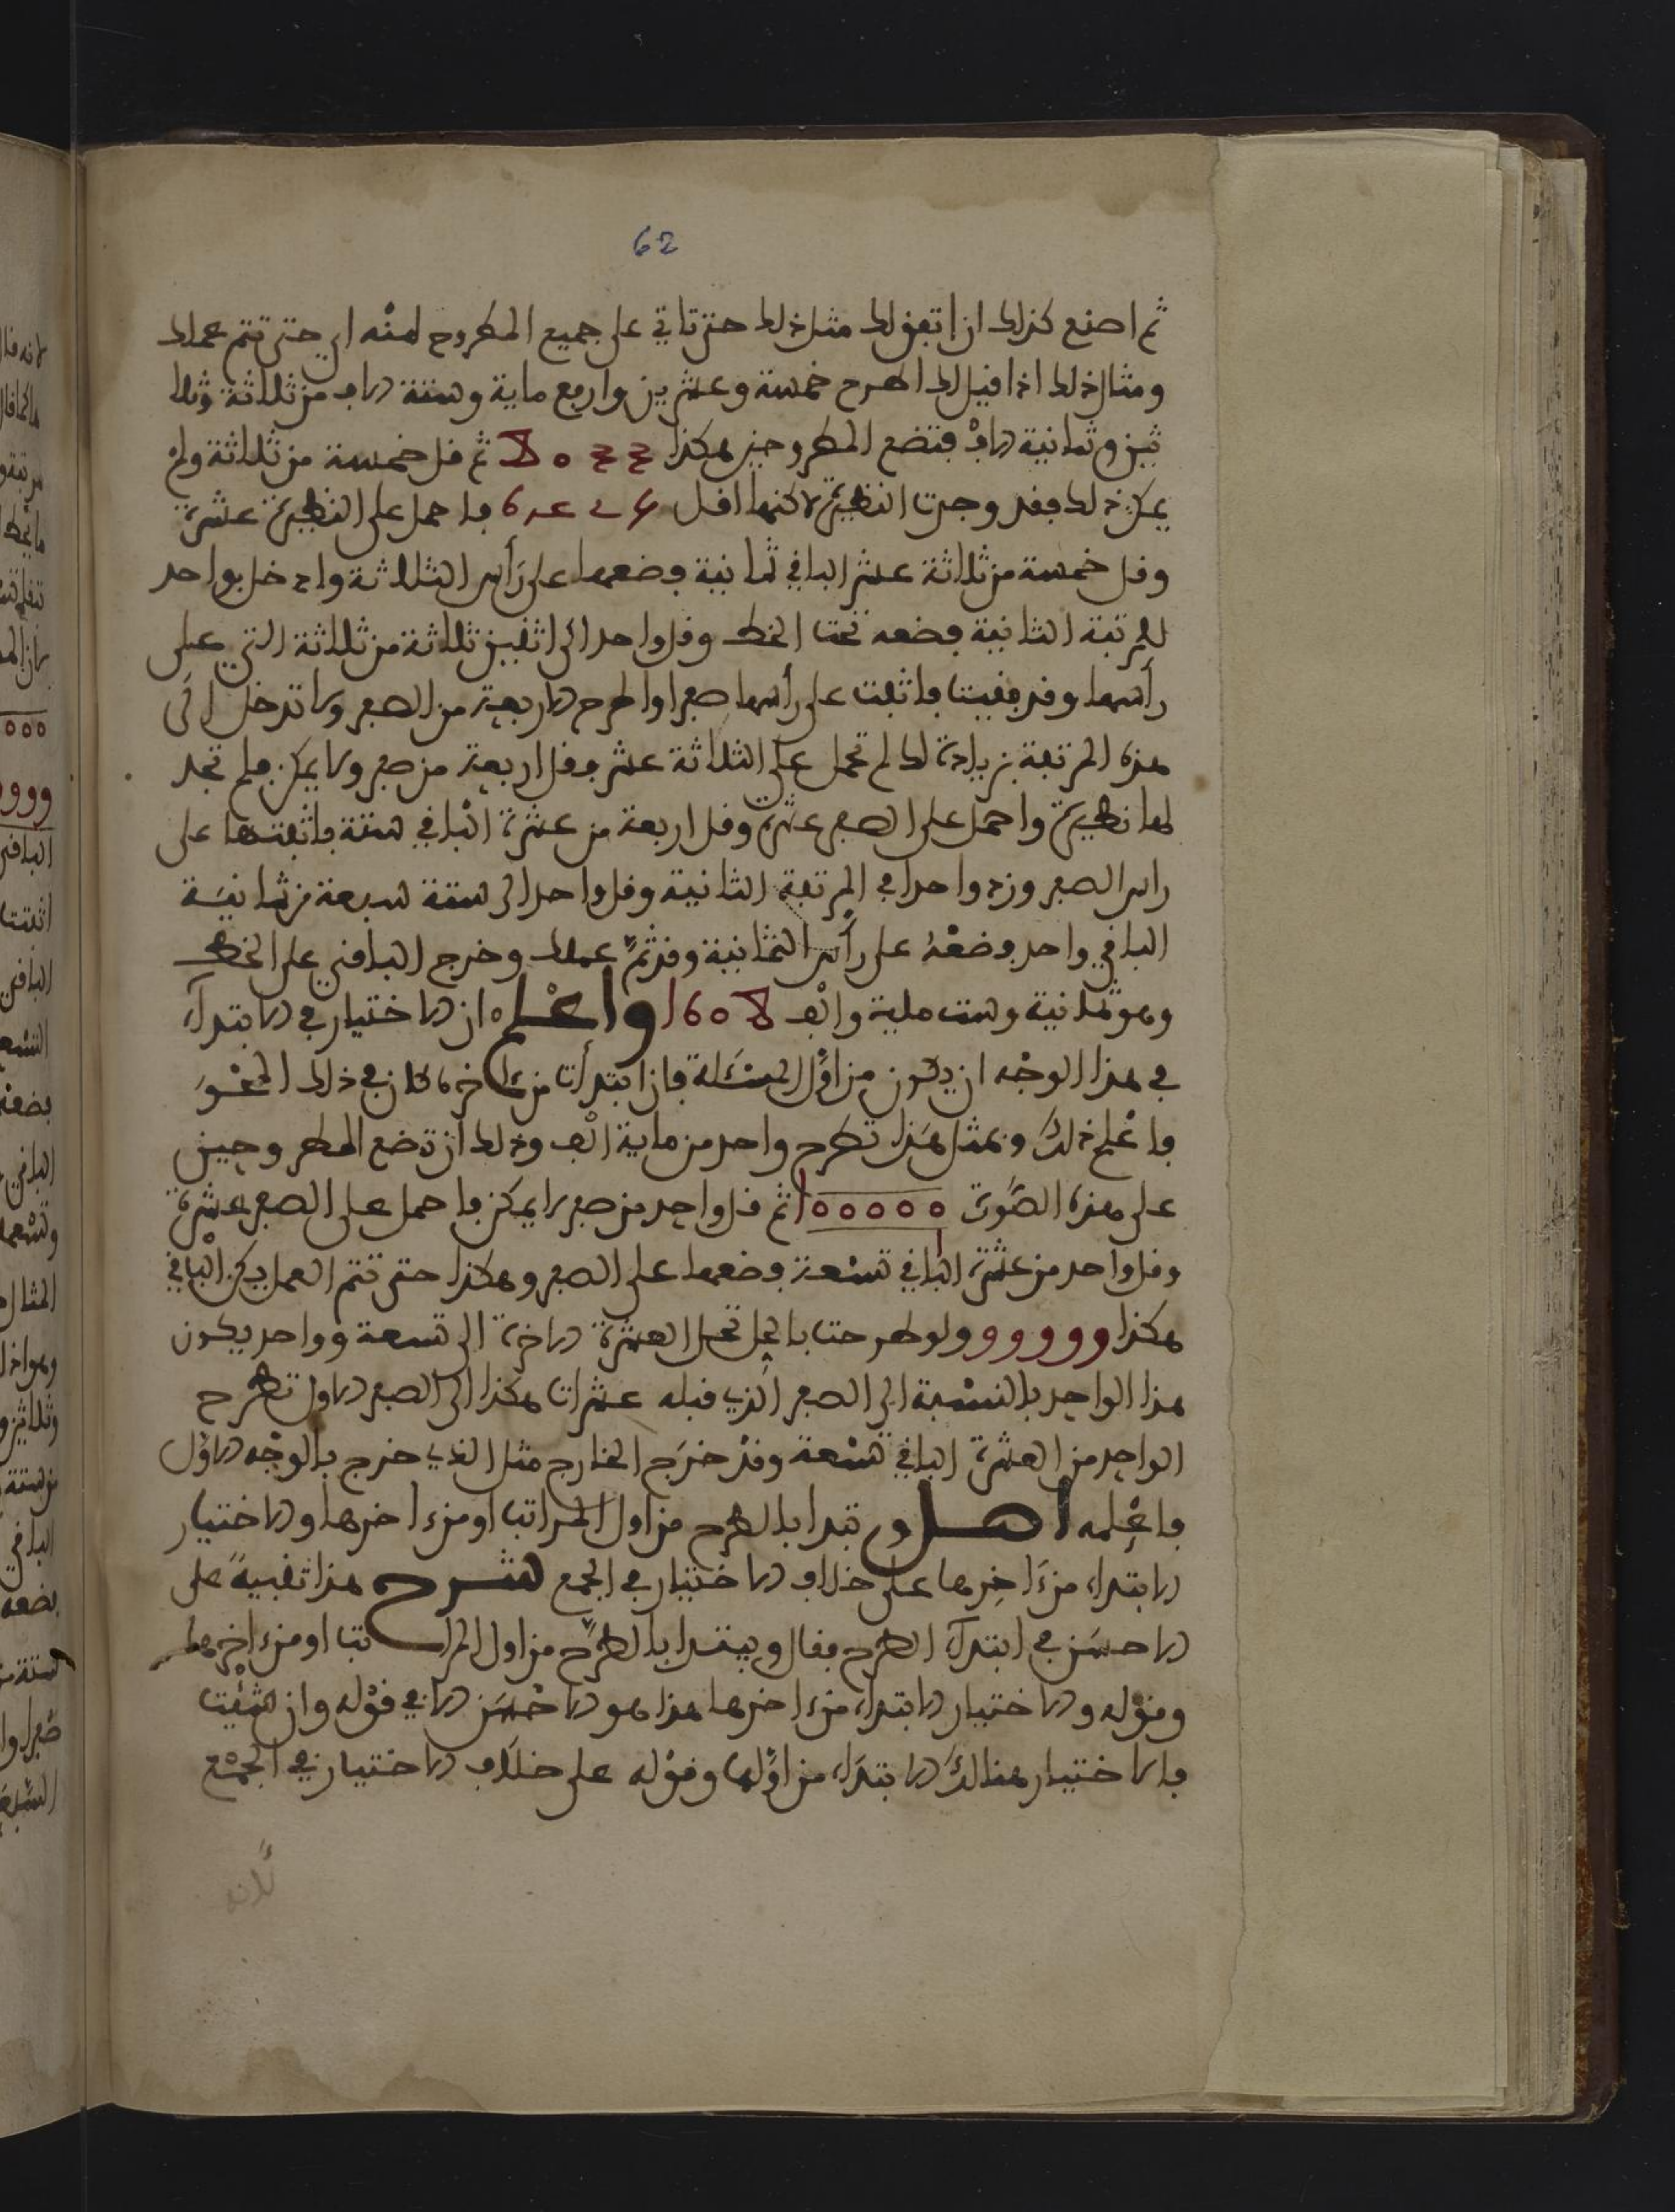 62
ثم اصنع كذلك ان اتفق لك مثل ذلك حتى تاتي على جميع المطروح منه اي حتى تتم عملك
ومثال ذلك اذا قيل لك اطرح خمسة وعشرين واربع ماية وستة ءالاف من ثلاثة وثلا
ثين وثمانية ءالاف فتضع المطروحين هكذا ثم قل خمسة من ثلاثة ولم
يمكن ذلك فقد وجدت النظيرة لاكنها اقل فاحمل على النظيرة عشرة
وقل خمسة من ثلاثة عشر الباقي ثمانية فضعها على رأس الثلاثة وادخل بواحد
للمرتبة الثانية فضعه تحت الخط وقل واحد الى اثنين ثلاثة من ثلاثة التي على
رأسها وقد فنيت فاثبت على رأسها صفرا واطرح الاربعة من الصفر ولا تدخل الى
هذه المرتبة بزيادة لك لم تحمل على الثلاثة عشر وقل اربعة من صفر ولا يمكن فلم تجد
لها نظيرة واحمل على الصفر عشرة وقل اربعة من عشرة الباقي ستة فاثبتها على
راس الصفر وزد واحدا في المرتبة الثانية وقل واحد الى ستة سبعة من ثمانية
الباقي واحد فضعه على رأس الثمانية وقد تم عملك وخرج الباقي على الخط
وهو ثمانية وست ماية والف واعلم ان الاختيار في الابتداء
في هذا الوجه ان يكون من اول المسئلة فان ابتدأت من ءاخرها كان في ذلك المحو
فاعلم ذلك وبمثل هذا تطرح واحد من ماية الف وذلك ان تضع المطروحين
على هذه الصورة ١٥٥٥٥٥ ثم قل واحد من صفر لا يمكن فاحمل على الصفر عشرة
وقل واحد من عشرة الباقي تسعة فضعها على الصفر وهكذا حتى تتم العمل يكن الباقي
هكذا ووووو ولو طرحت بالحل تحل العشرة الاخرة الى تسعة وواحد يكون
هذا الواحد بالنسبة الى الصفر الذي قبله عشرات هكذا الى الصفر الاول تطرح
الواحد من العشرة الباقي تسعة وقد خرج الخارج مثل الذي خرج بالوجه الاول
فاعلمه اصل وتبدا بالطرح من اول المراتب او من ءاخرها والاختيار
الابتداء من ءاخرها على خلاف الاختيار في الجمع شرح هذا تنبيه على
الاحسن في ابتداء الطرح فقال ويبتدا بالطرح من اول المراتب او من ءاخرها
وقوله والاختيار الابتداء من ءاخرها هذا هو الاحسن لان في قوله وان شئت
فالاختيار هنالك الابتداء من اولها وقوله على خلاف الاختيار في الجمع
لانه